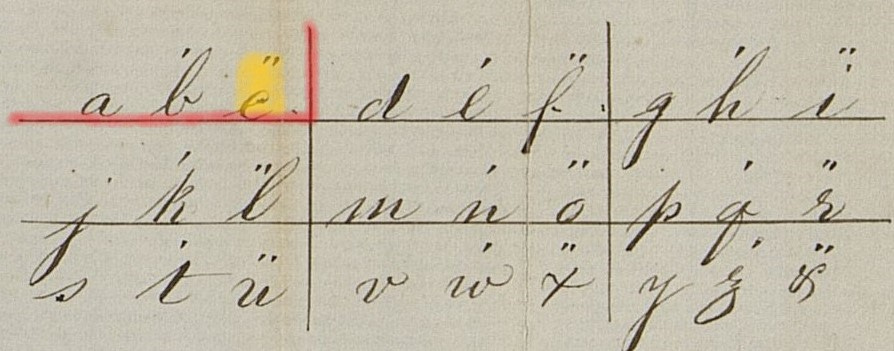 a b́ c̈. d é f̈. g h́ ï
j ḱ l̈ m ń ö p q́ r̈
s t́ ü v ẃ ẍ y ź &̈